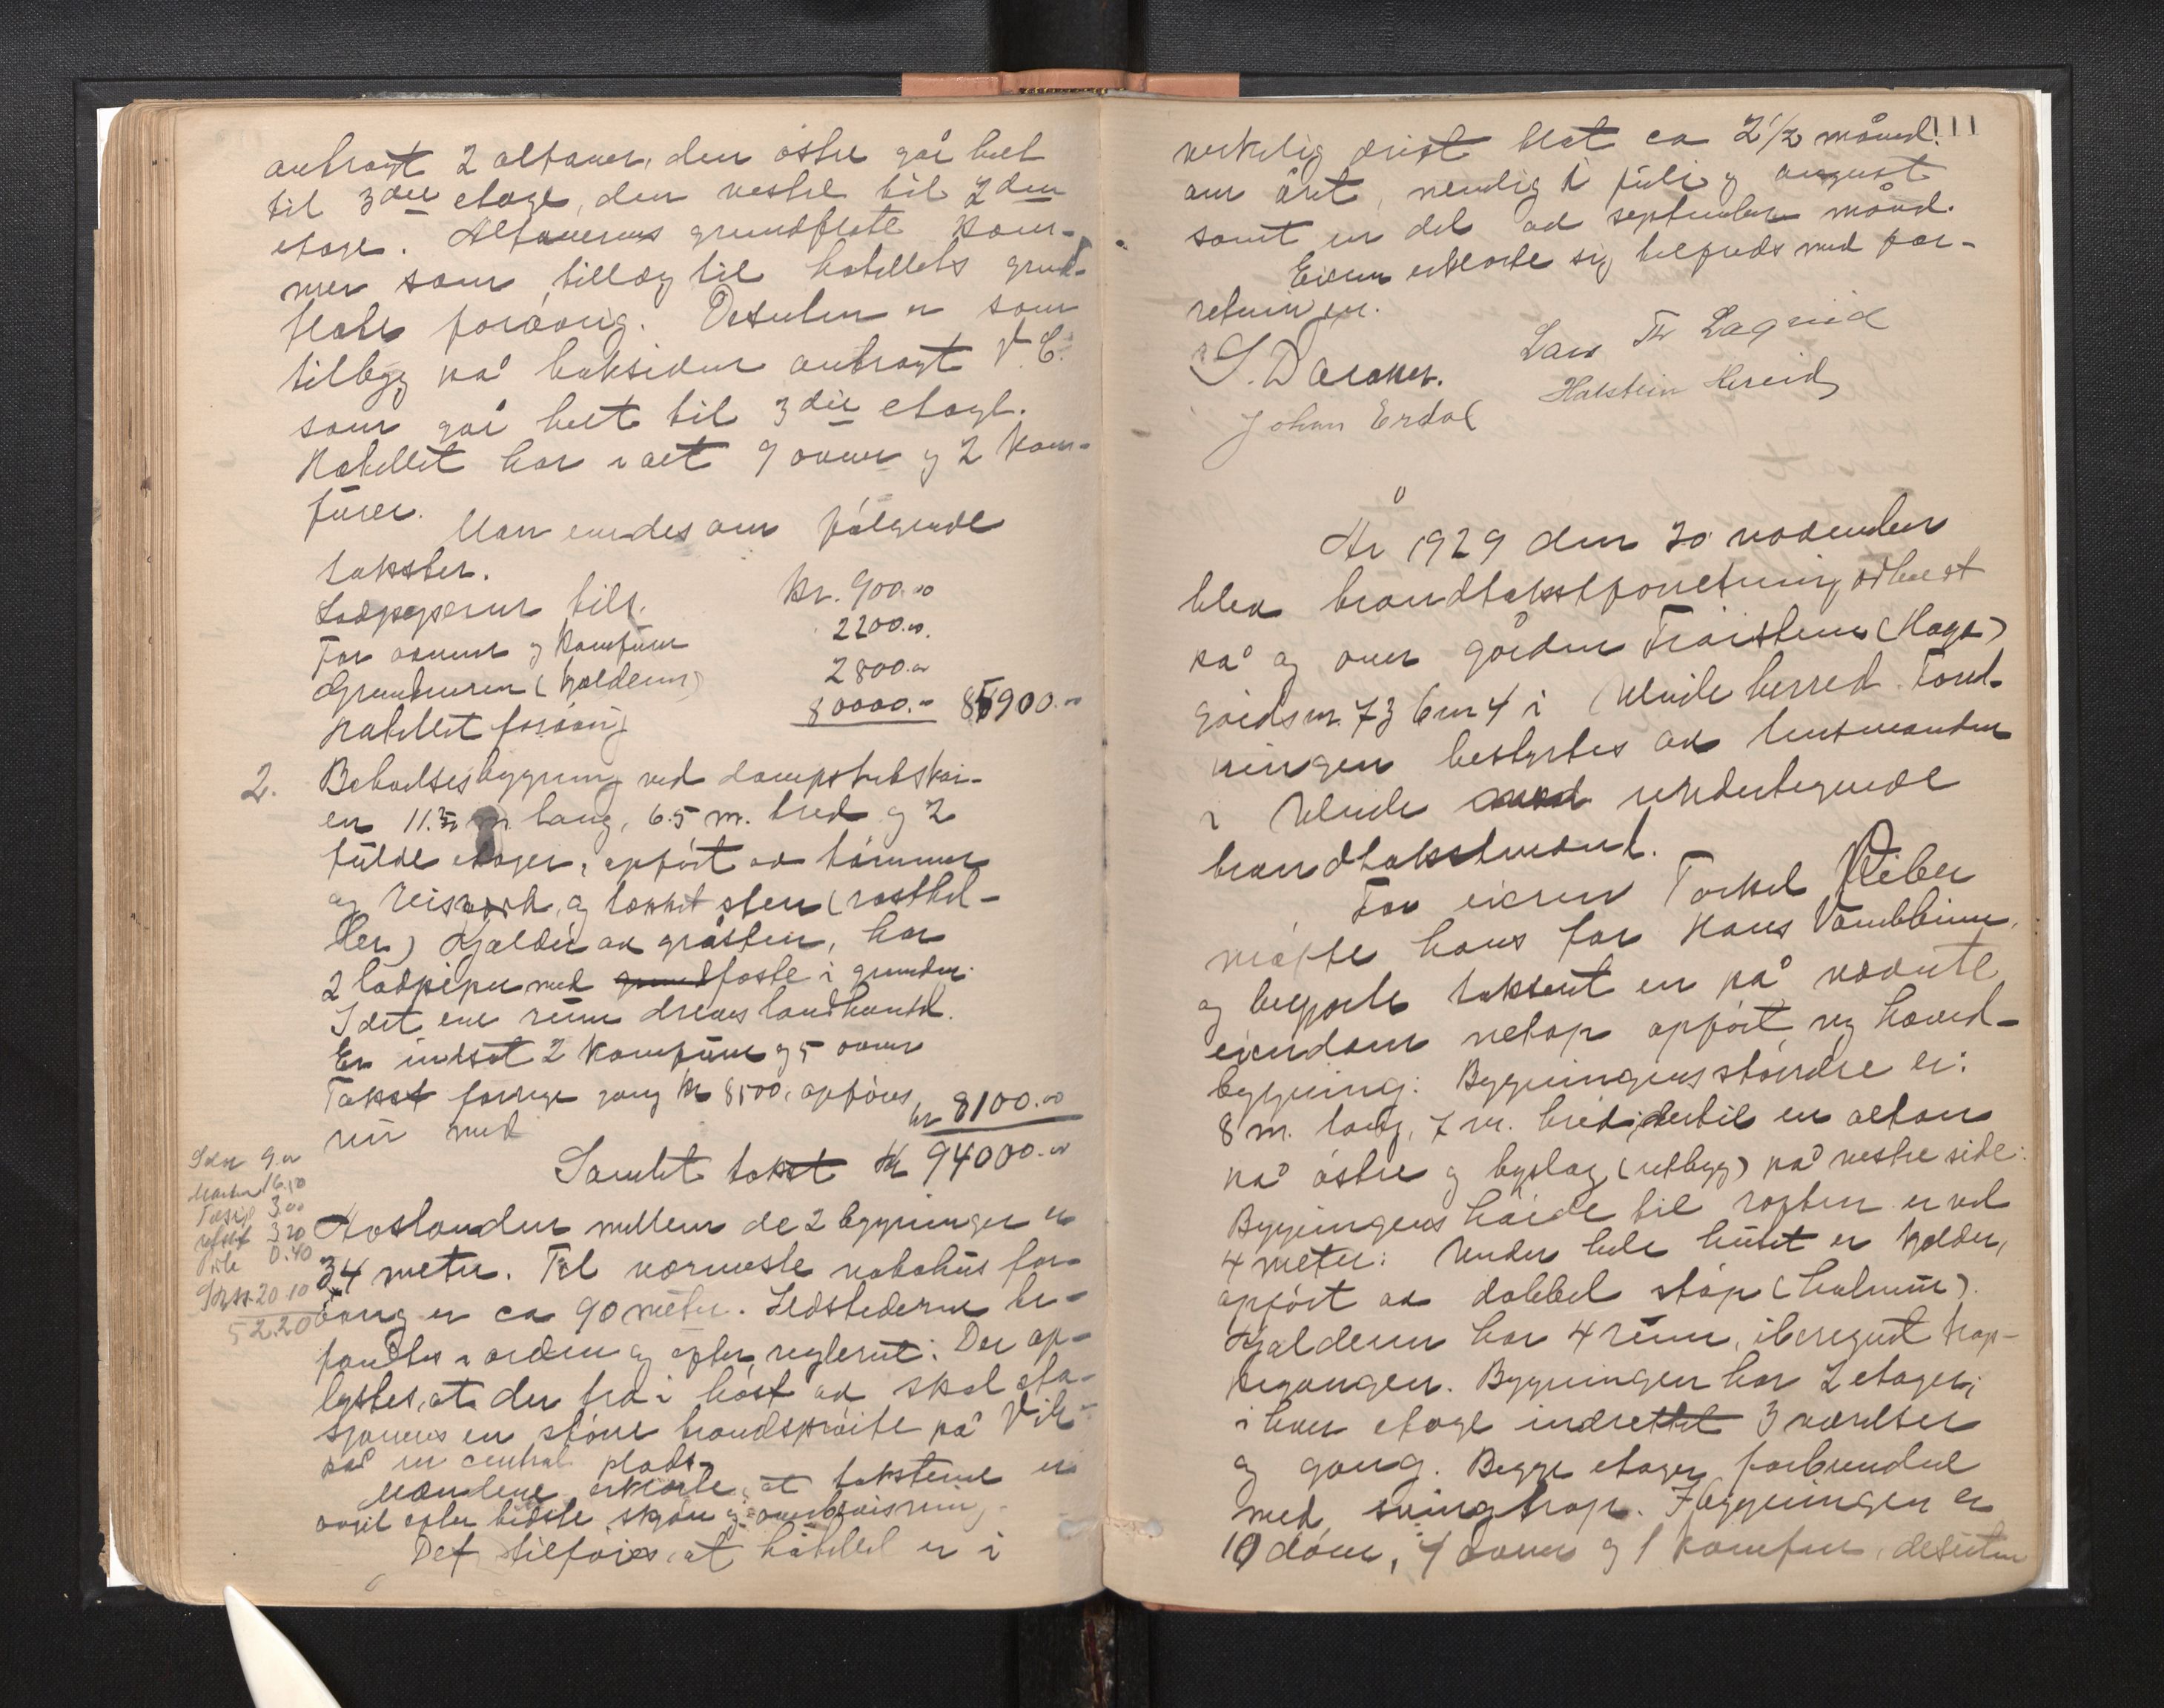 anbragt 2 altaner, den østre går helt
til 3die etage, den vestre til 2den
etage. Altanernes grundflate kom-
mer som tillæg til hotellets grund-
flate forøvrig. Desuten er som
tilbygg på baksiden anbragt V.C.
som går helt til 3die etage.
Hotellet har i alt 9 ovner og 2 kom-
fürer.
Man enedes om følgende
takster.
Ildpiperne tils. kr. 900.00
For ovner og komfürer 2200.00
Grundmuren (kjelderen) 2800.00
Hotellet forøvrig 80000.00 85900.00
2. Beboelsesbygning ved dampskibskai-
en 11. m lang, 6.5 m. bred og 2
fulde etager, opført av tømmer
og reisverk, og tækket sten (rasthel-
ler) Kjelder av gråsten, har
2 ildpiper med grund faste i grunden.
I det ene rum drives landhandel.
Er indsat 2 komfürer og 5 ovner
Takst forrige gang kr 8500, opføres
nu med kr 8100.00
Samlet takst kr 94000.00
9.00
16.50
3.00
3.20
0.40
20.10
52.20
Avstanden mellem de 2 bygninger er
34 meter. Til nærmeste nabohus for-
øvrig er ca 90 meter. Ildstederne be-
fandtes i orden og efter reglerne. Der op-
lystes, at der fra i høst av skal sta-
sjoneres en større brandsprøite på Vik
på en central plads.
Mændene erklærte, at taksterne er
avgit efter bedste skjøn og overbevisning.
Det tilføies, at hotellet er i
111
virkelig drift blot ca 2 1/2 måned
om året, nemlig i juli og august
samt en del av september måned.
Eieren erklærte sig tilfreds med for-
retningen.
Lars Th Lagreid
Halstein Hereid
Johan Erdal
År 1929 den 20 november
blev brandtakstforretning avholdt
på og over gården Traisteen (Haga)
gårdsnr. 73 bnr 4 i Ulvik herred. Forret-
ningen bestyrtes av lensmanden
i Ulvik med undertegnede
brandtakstmænd.
For eieren Torkel
møtte hans far Hans Vambheim,
og begjærte taksert en på nævnte
eiendom netop opført ny hoved-
bygning: Bygningens størrelse er:
8 m. lang, 7 m. bred, dertil en altan
på østre og byslag (utbygg) på vestre side.
Bygningens høide til røsten er ved
4 meter. Under hele huset er kjelder,
opført av dobbel støp (hulmur).
Kjelderen har 4 rum, iberegnet trap-
pegangen. Bygningen har 2 etager;
i hver etage indrettet 3 værelser
og gang. Begge etager forbundne
med svingtrap. I bygningen er
10 døre, 4 ovner og 1 komfur, desuten